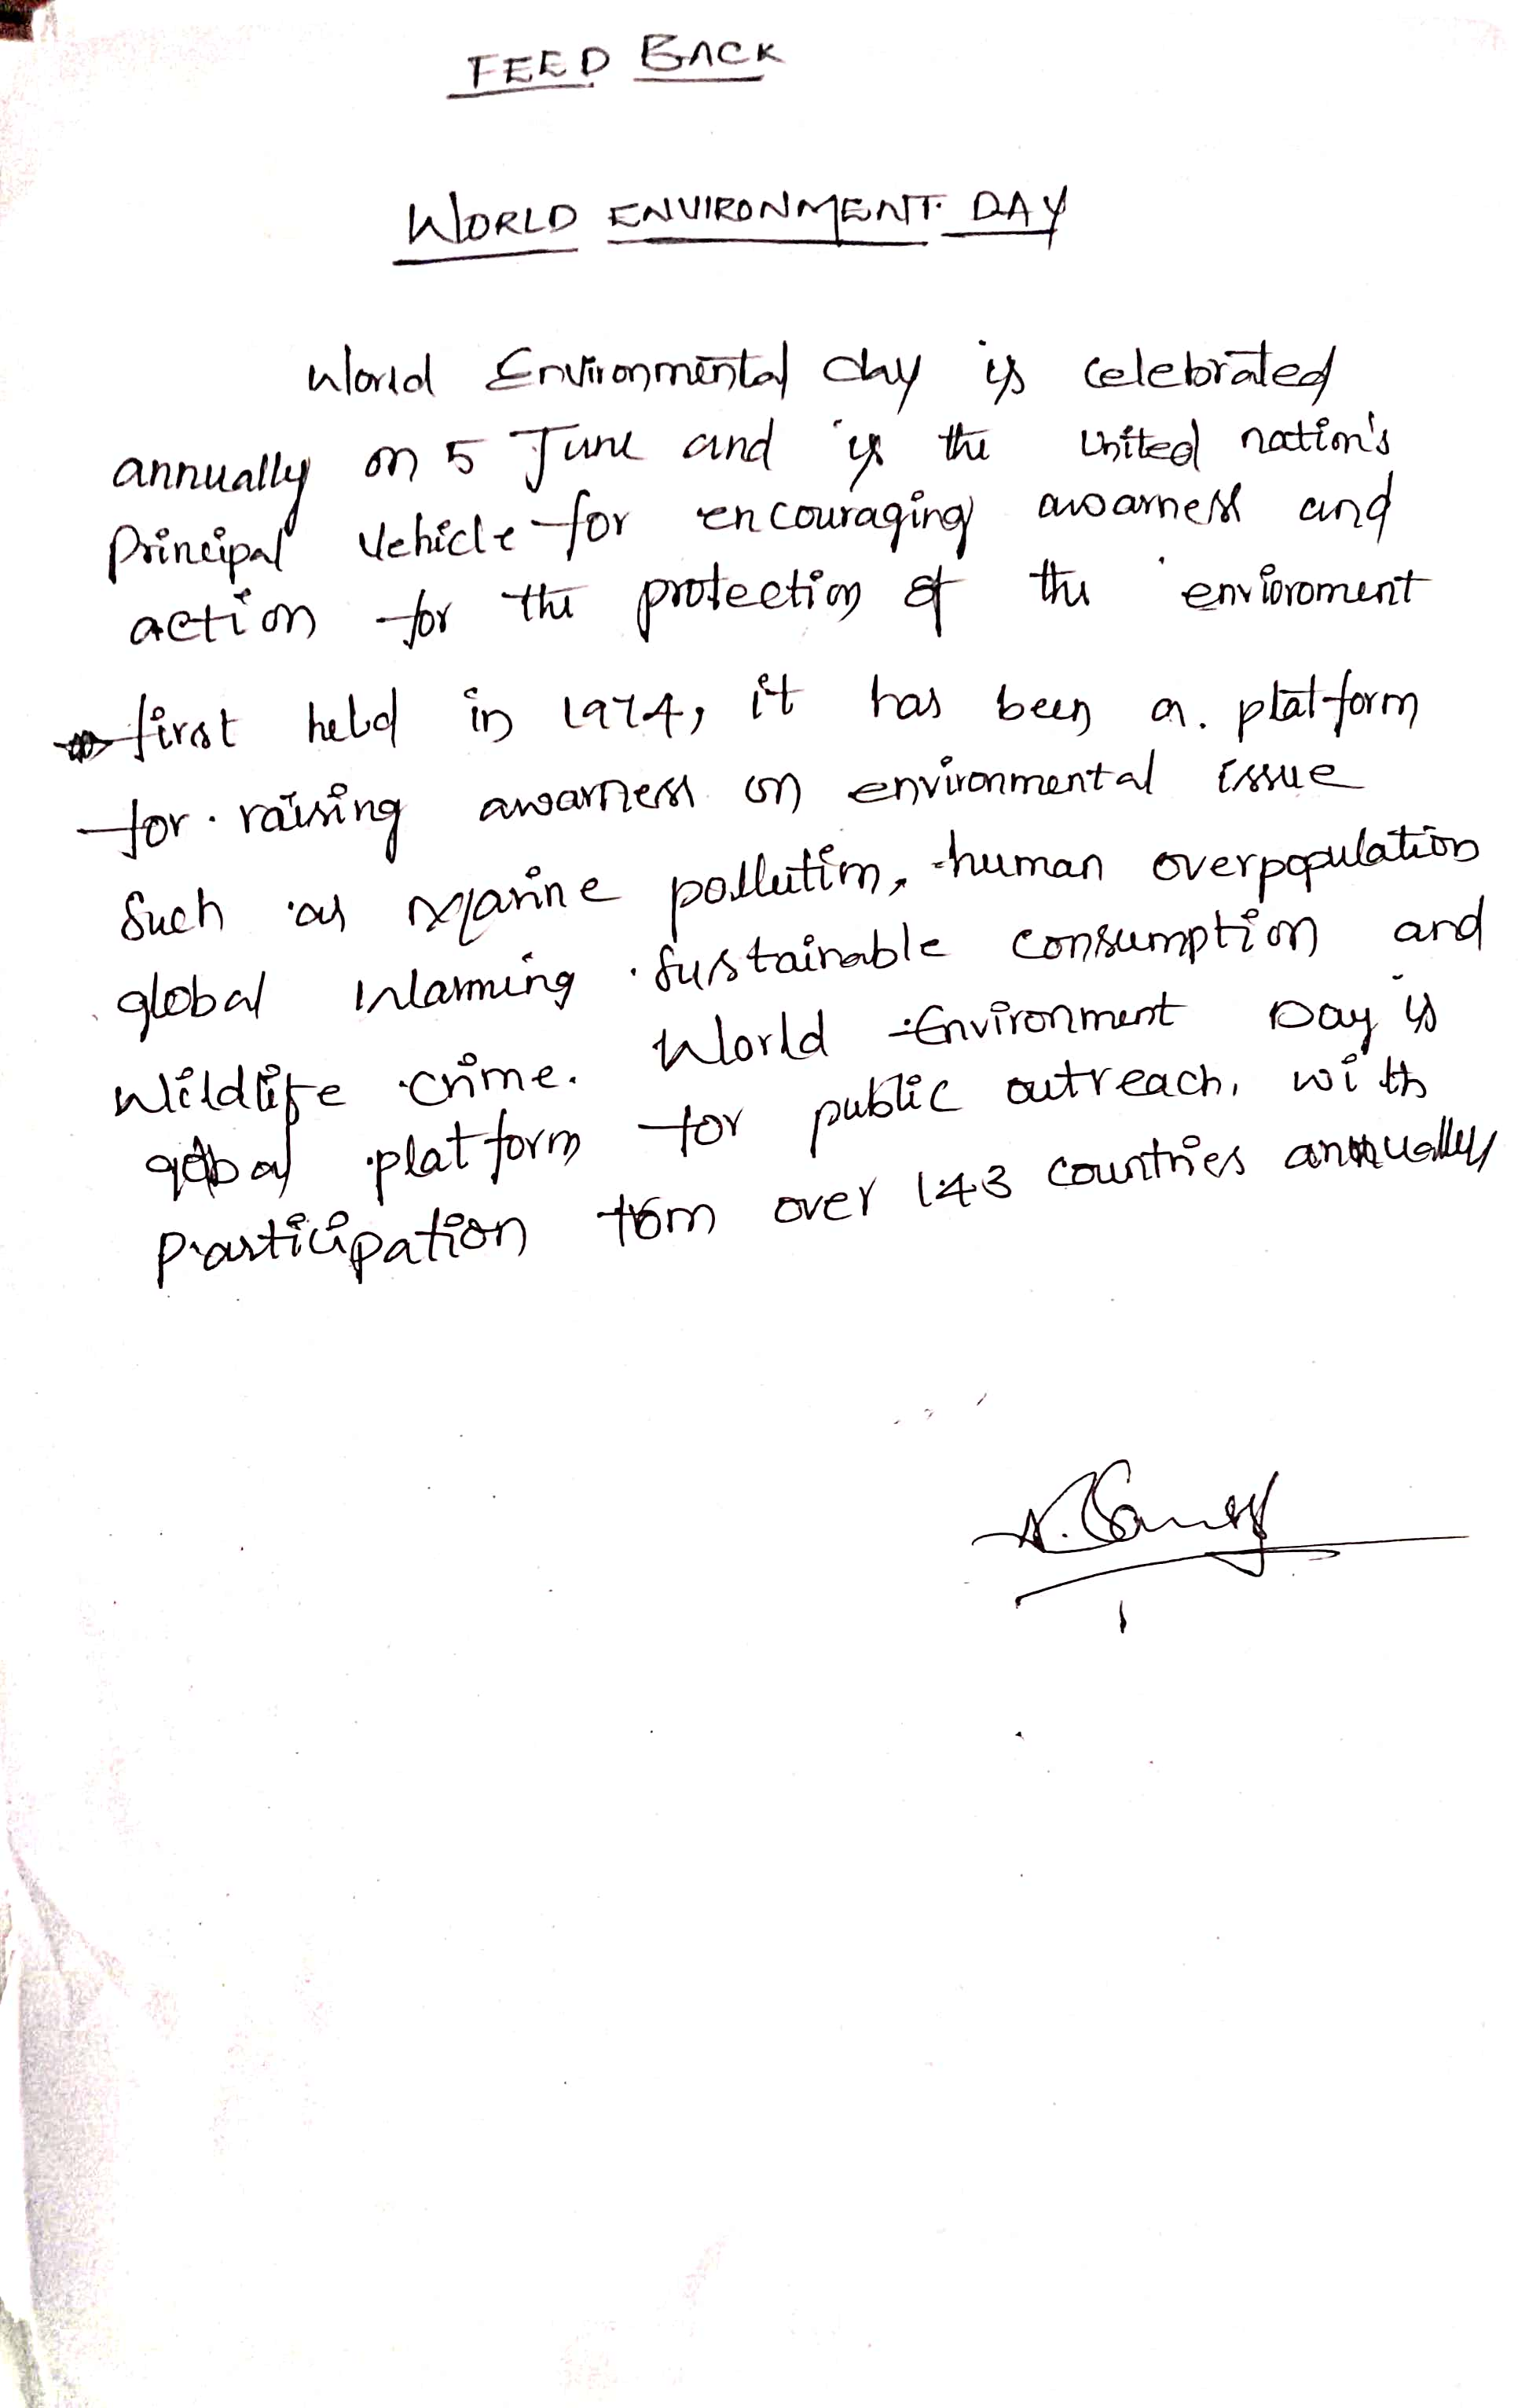 FEED BACK
WORLD ENVIRONMENT DAY
World Environmental day is celebrated
annually on 5 June and is the United nation's
Principal Vehicle for encouraging awarness and
action for the protection of the envioroment
first held in 1974, it has been a platform
for raising awarness on environmental issue
Such as Marine pollution, human overpopulation
global Warming Sustainable consumption and
Wildlife crime. World Environment Day is
global platform for public outreach, with
participation from over 143 countries annually